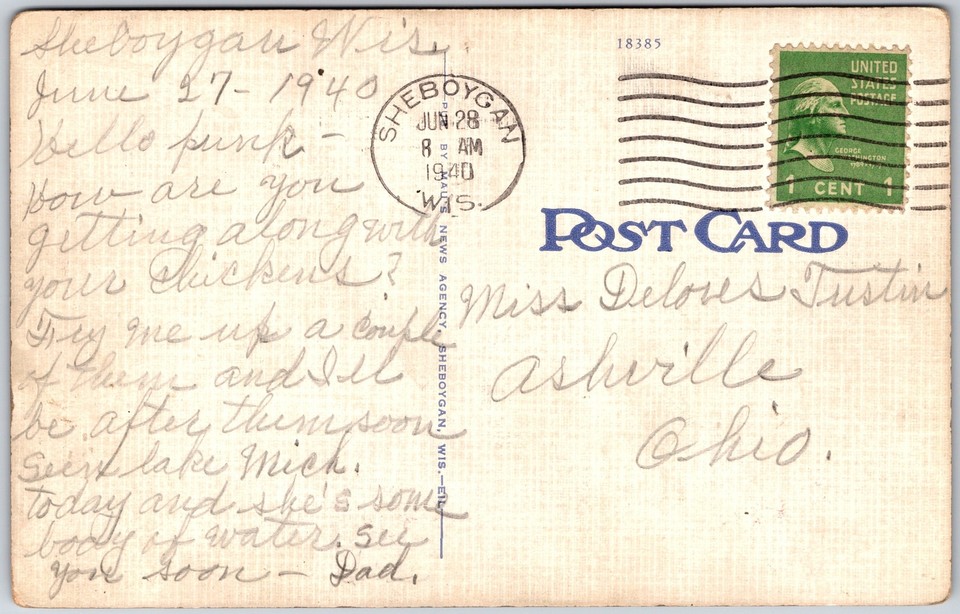 Sheboygan Wis.
June 27 - 1940
Hello punk -
How are you
getting along with
your chickens?
Fry me up a couple
of them and I'll
be after them soon
Seen lake Mich.
today and she's some
body of water. See
you soon - Dad.
BY NEWS AGENCY, SHEBOYGAN, WIS.—
SHEBOYGAN
JUN 28
8 AM
1940
WIS.
18385
UNITED
STATES
POSTAGE
GEORGE
WASHINGTON
1 CENT 1
POST CARD
Miss Delores Tustin
Ashville
Ohio.